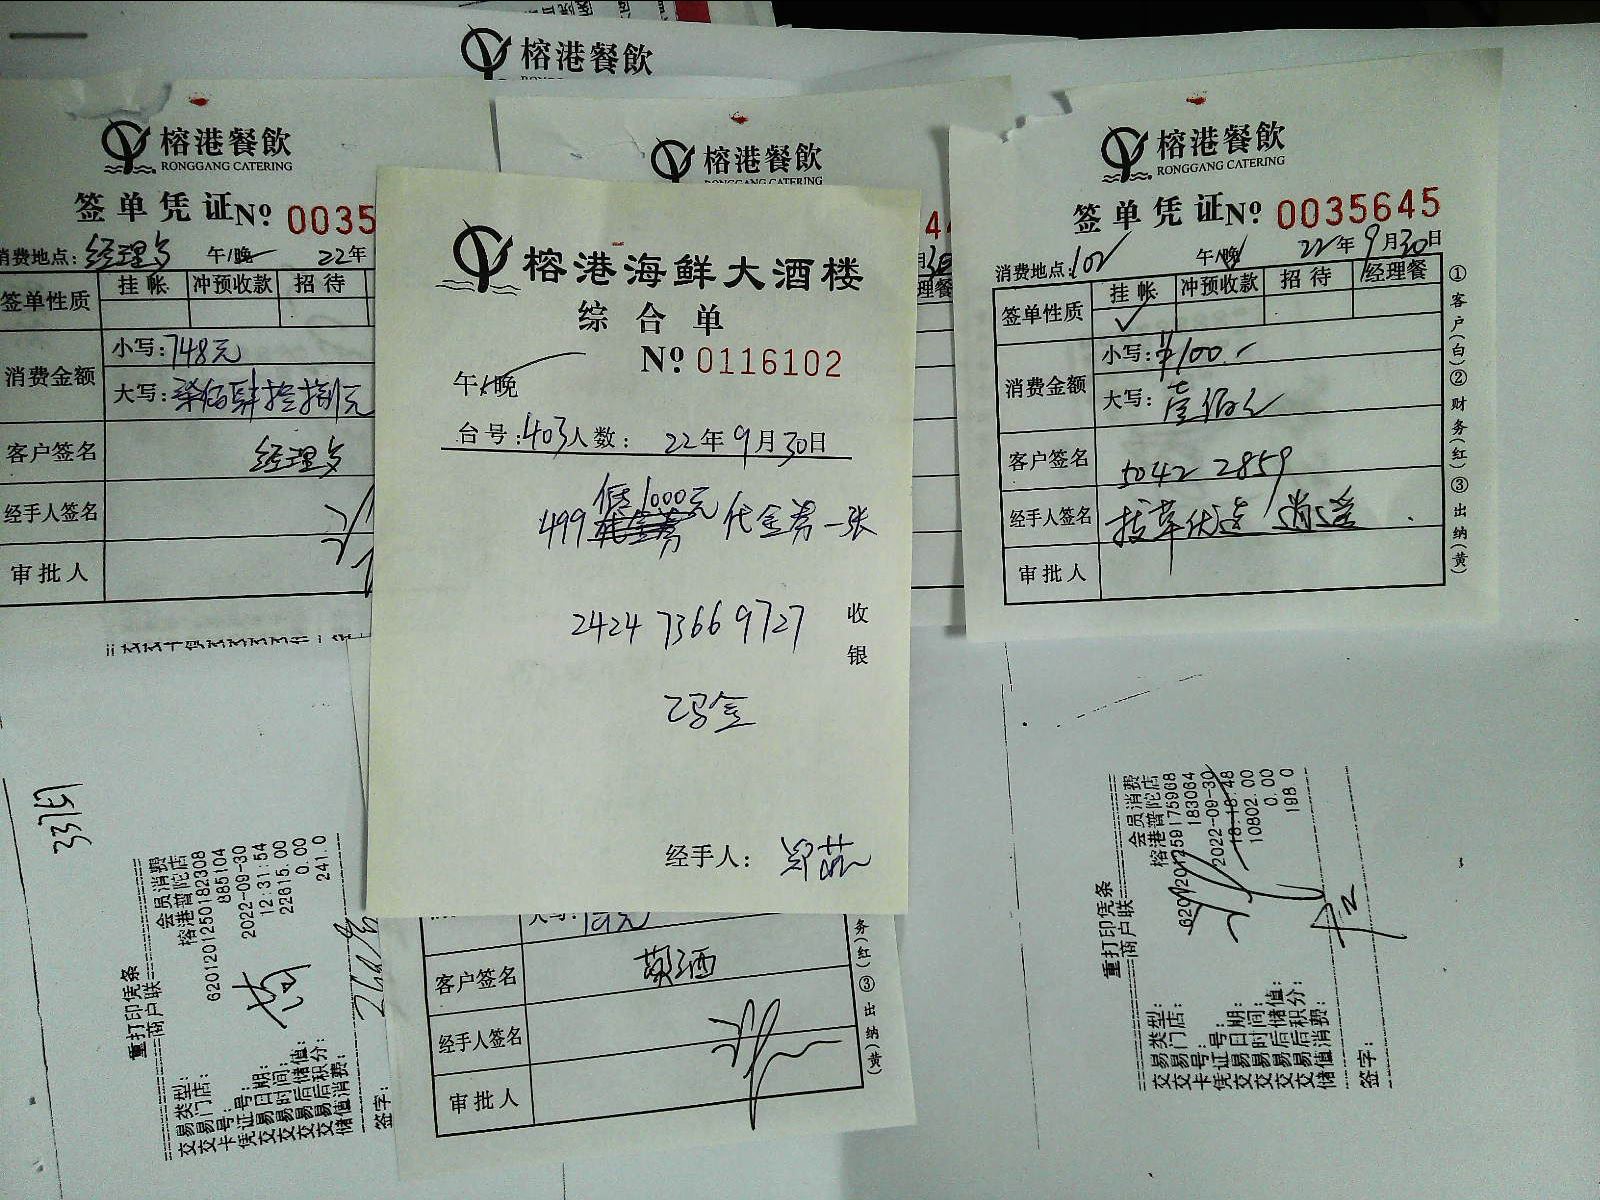 榕港餐飲
榕港餐飲
RONGGANG CATERING
签单凭证 No 0035
消费地点:经理
午/晚 22年
签单性质 挂帐 冲预收款 招待
消费金额 小写:748元
大写:柒佰肆拾捌元
客户签名 经理
经手人签名
审批人
榕港餐飲
RONGGANG CATERING
榕港海鲜大酒楼
综合单
No 0116102
午/晚
台号:403 人数: 22年9月30日
抵1000元
499 代金券一张
2424 7366 9727
收银
经手人:
榕港餐飲
RONGGANG CATERING
签单凭证 No 0035645
消费地点:102 午/晚 22年9月30日
签单性质 挂帐 冲预收款 招待 经理餐
✓
消费金额 小写:¥100.-
大写:壹佰元
客户签名 5042 2859
经手人签名
审批人
①客户(白)②财务(红)③出纳(黄)
重打印凭条
商户联
交易类型: 会员消费
交易门店: 榕港普陀店
卡号: 6201201250182308
凭证号: 885104
交易日期: 2022-09-30
交易时间: 12:31:54
交易后储值: 22615.00
交易后积分: 0.00
储值消费: 241.0
签字:
大写:
客户签名
经手人签名
审批人
务(红)③出纳(黄)
重打印凭条
商户联
交易类型: 会员消费
交易门店: 榕港普陀店
卡号: 6201201259175968
凭证号: 183064
交易日期: 2022-09-30
交易时间: 18:18:48
交易后储值: 10802.00
交易后积分: 0.00
储值消费: 198.0
签字: